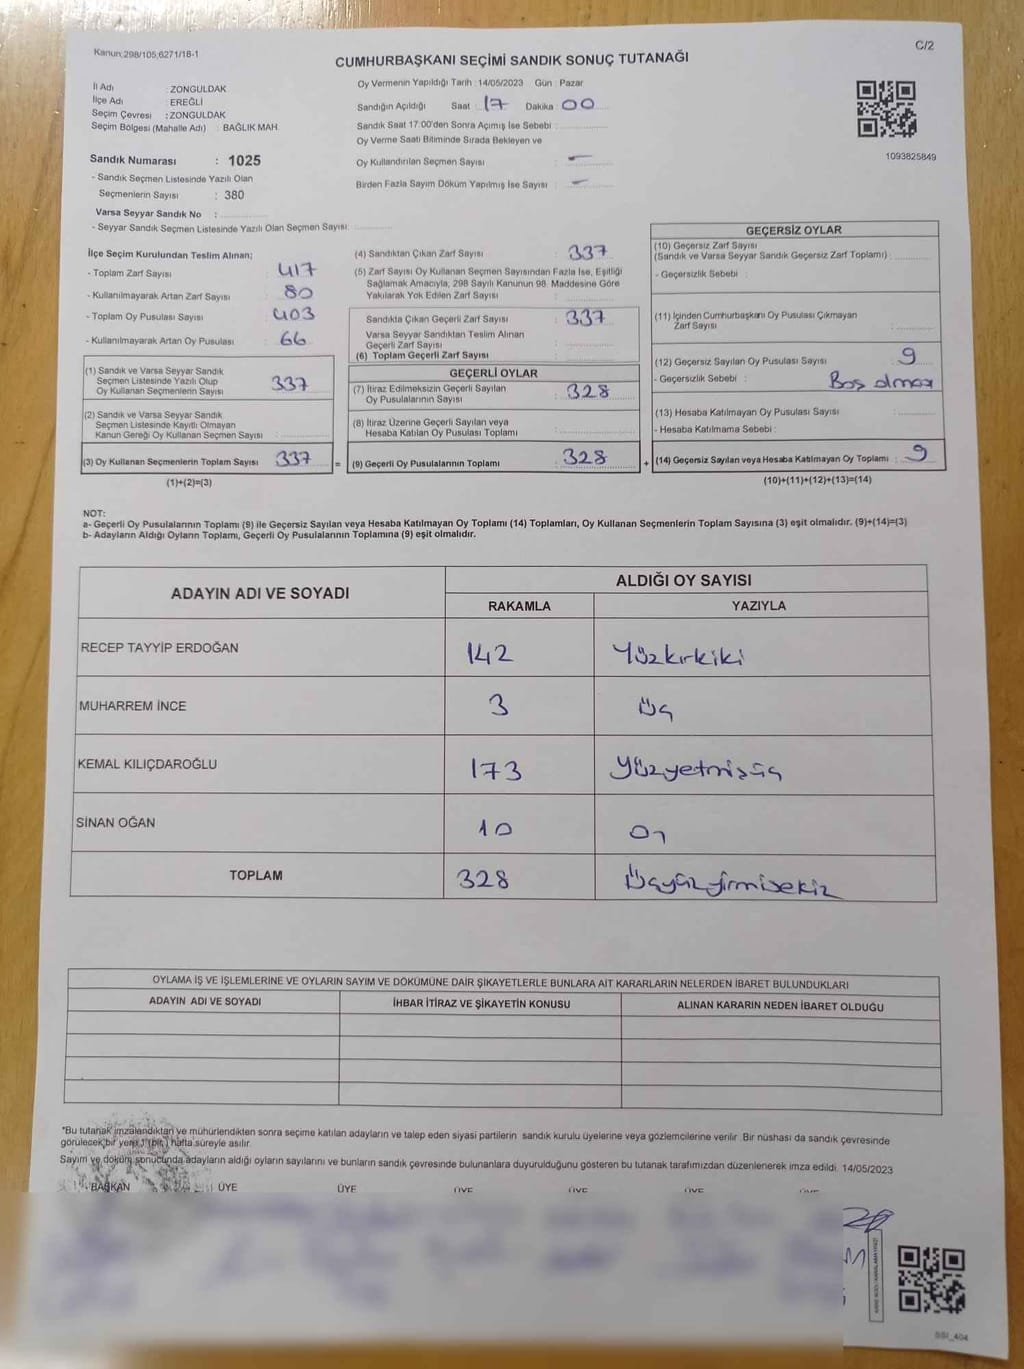 Kanun;298/105;6271/18-1
C/2
CUMHURBAŞKANI SEÇİMİ SANDIK SONUÇ TUTANAĞI
İl Adı : ZONGULDAK
İlçe Adı : EREĞLİ
Seçim Çevresi : ZONGULDAK
Seçim Bölgesi (Mahalle Adı) : BAĞLIK MAH.
Oy Vermenin Yapıldığı Tarih : 14/05/2023 Gün : Pazar
Sandığın Açıldığı Saat : 17 Dakika : 00
Sandık Saat 17:00'den Sonra Açımış İse Sebebi :
Oy Verme Saati Bitiminde Sırada Bekleyen ve
Oy Kullandırılan Seçmen Sayısı : -
Birden Fazla Sayım Döküm Yapılmış İse Sayısı : -
1093825849
Sandık Numarası : 1025
- Sandık Seçmen Listesinde Yazılı Olan
Seçmenlerin Sayısı : 380
Varsa Seyyar Sandık No :
- Seyyar Sandık Seçmen Listesinde Yazılı Olan Seçmen Sayısı:
İlçe Seçim Kurulundan Teslim Alınan;
- Toplam Zarf Sayısı : 417
- Kullanılmayarak Artan Zarf Sayısı : 80
- Toplam Oy Pusulası Sayısı : 403
- Kullanılmayarak Artan Oy Pusulası : 66
(1) Sandık ve Varsa Seyyar Sandık
Seçmen Listesinde Yazılı Olup
Oy Kullanan Seçmenlerin Sayısı : 337
(2) Sandık ve Varsa Seyyar Sandık
Seçmen Listesinde Kayıtlı Olmayan
Kanun Gereği Oy Kullanan Seçmen Sayısı :
(3) Oy Kullanan Seçmenlerin Toplam Sayısı : 337
(1)+(2)=(3)
(4) Sandıktan Çıkan Zarf Sayısı : 337
(5) Zarf Sayısı Oy Kullanan Seçmen Sayısından Fazla İse, Eşitliği
Sağlamak Amacıyla, 298 Sayılı Kanunun 98. Maddesine Göre
Yakılarak Yok Edilen Zarf Sayısı :
Sandıkta Çıkan Geçerli Zarf Sayısı : 337
Varsa Seyyar Sandıktan Teslim Alınan
Geçerli Zarf Sayısı :
(6) Toplam Geçerli Zarf Sayısı :
GEÇERLİ OYLAR
(7) İtiraz Edilmeksizin Geçerli Sayılan
Oy Pusulalarının Sayısı : 328
(8) İtiraz Üzerine Geçerli Sayılan veya
Hesaba Katılan Oy Pusulası Toplamı :
= (9) Geçerli Oy Pusulalarının Toplamı : 328
GEÇERSİZ OYLAR
(10) Geçersiz Zarf Sayısı
(Sandık ve Varsa Seyyar Sandık Geçersiz Zarf Toplamı) :
- Geçersizlik Sebebi :
(11) İçinden Cumhurbaşkanı Oy Pusulası Çıkmayan
Zarf Sayısı :
(12) Geçersiz Sayılan Oy Pusulası Sayısı : 9
- Geçersizlik Sebebi : Boş olması
(13) Hesaba Katılmayan Oy Pusulası Sayısı :
- Hesaba Katılmama Sebebi :
+ (14) Geçersiz Sayılan veya Hesaba Katılmayan Oy Toplamı : 9
(10)+(11)+(12)+(13)=(14)
NOT:
a- Geçerli Oy Pusulalarının Toplamı (9) ile Geçersiz Sayılan veya Hesaba Katılmayan Oy Toplamı (14) Toplamları, Oy Kullanan Seçmenlerin Toplam Sayısına (3) eşit olmalıdır. (9)+(14)=(3)
b- Adayların Aldığı Oyların Toplamı, Geçerli Oy Pusulalarının Toplamına (9) eşit olmalıdır.
ADAYIN ADI VE SOYADI
ALDIĞI OY SAYISI
RAKAMLA YAZIYLA
RECEP TAYYİP ERDOĞAN 142 Yüzkırkiki
MUHARREM İNCE 3 Üç
KEMAL KILIÇDAROĞLU 173 Yüzyetmişüç
SİNAN OĞAN 10 On
TOPLAM 328 Üçyüzyirmisekiz
OYLAMA İŞ VE İŞLEMLERİNE VE OYLARIN SAYIM VE DÖKÜMÜNE DAİR ŞİKAYETLERLE BUNLARA AİT KARARLARIN NELERDEN İBARET BULUNDUKLARI
ADAYIN ADI VE SOYADI İHBAR İTİRAZ VE ŞİKAYETİN KONUSU ALINAN KARARIN NEDEN İBARET OLDUĞU
*Bu tutanak imzalandıktan ve mühürlendikten sonra seçime katılan adayların ve talep eden siyasi partilerin sandık kurulu üyelerine veya gözlemcilerine verilir. Bir nüshası da sandık çevresinde
görülecek bir yere 1 (bir) hafta süreyle asılır.
Sayım ve döküm sonucunda adayların aldığı oyların sayılarını ve bunların sandık çevresinde bulunanlara duyurulduğunu gösteren bu tutanak tarafımızdan düzenlenerek imza edildi. 14/05/2023
BAŞKAN ÜYE ÜYE ÜYE ÜYE ÜYE ÜYE
SSI_404